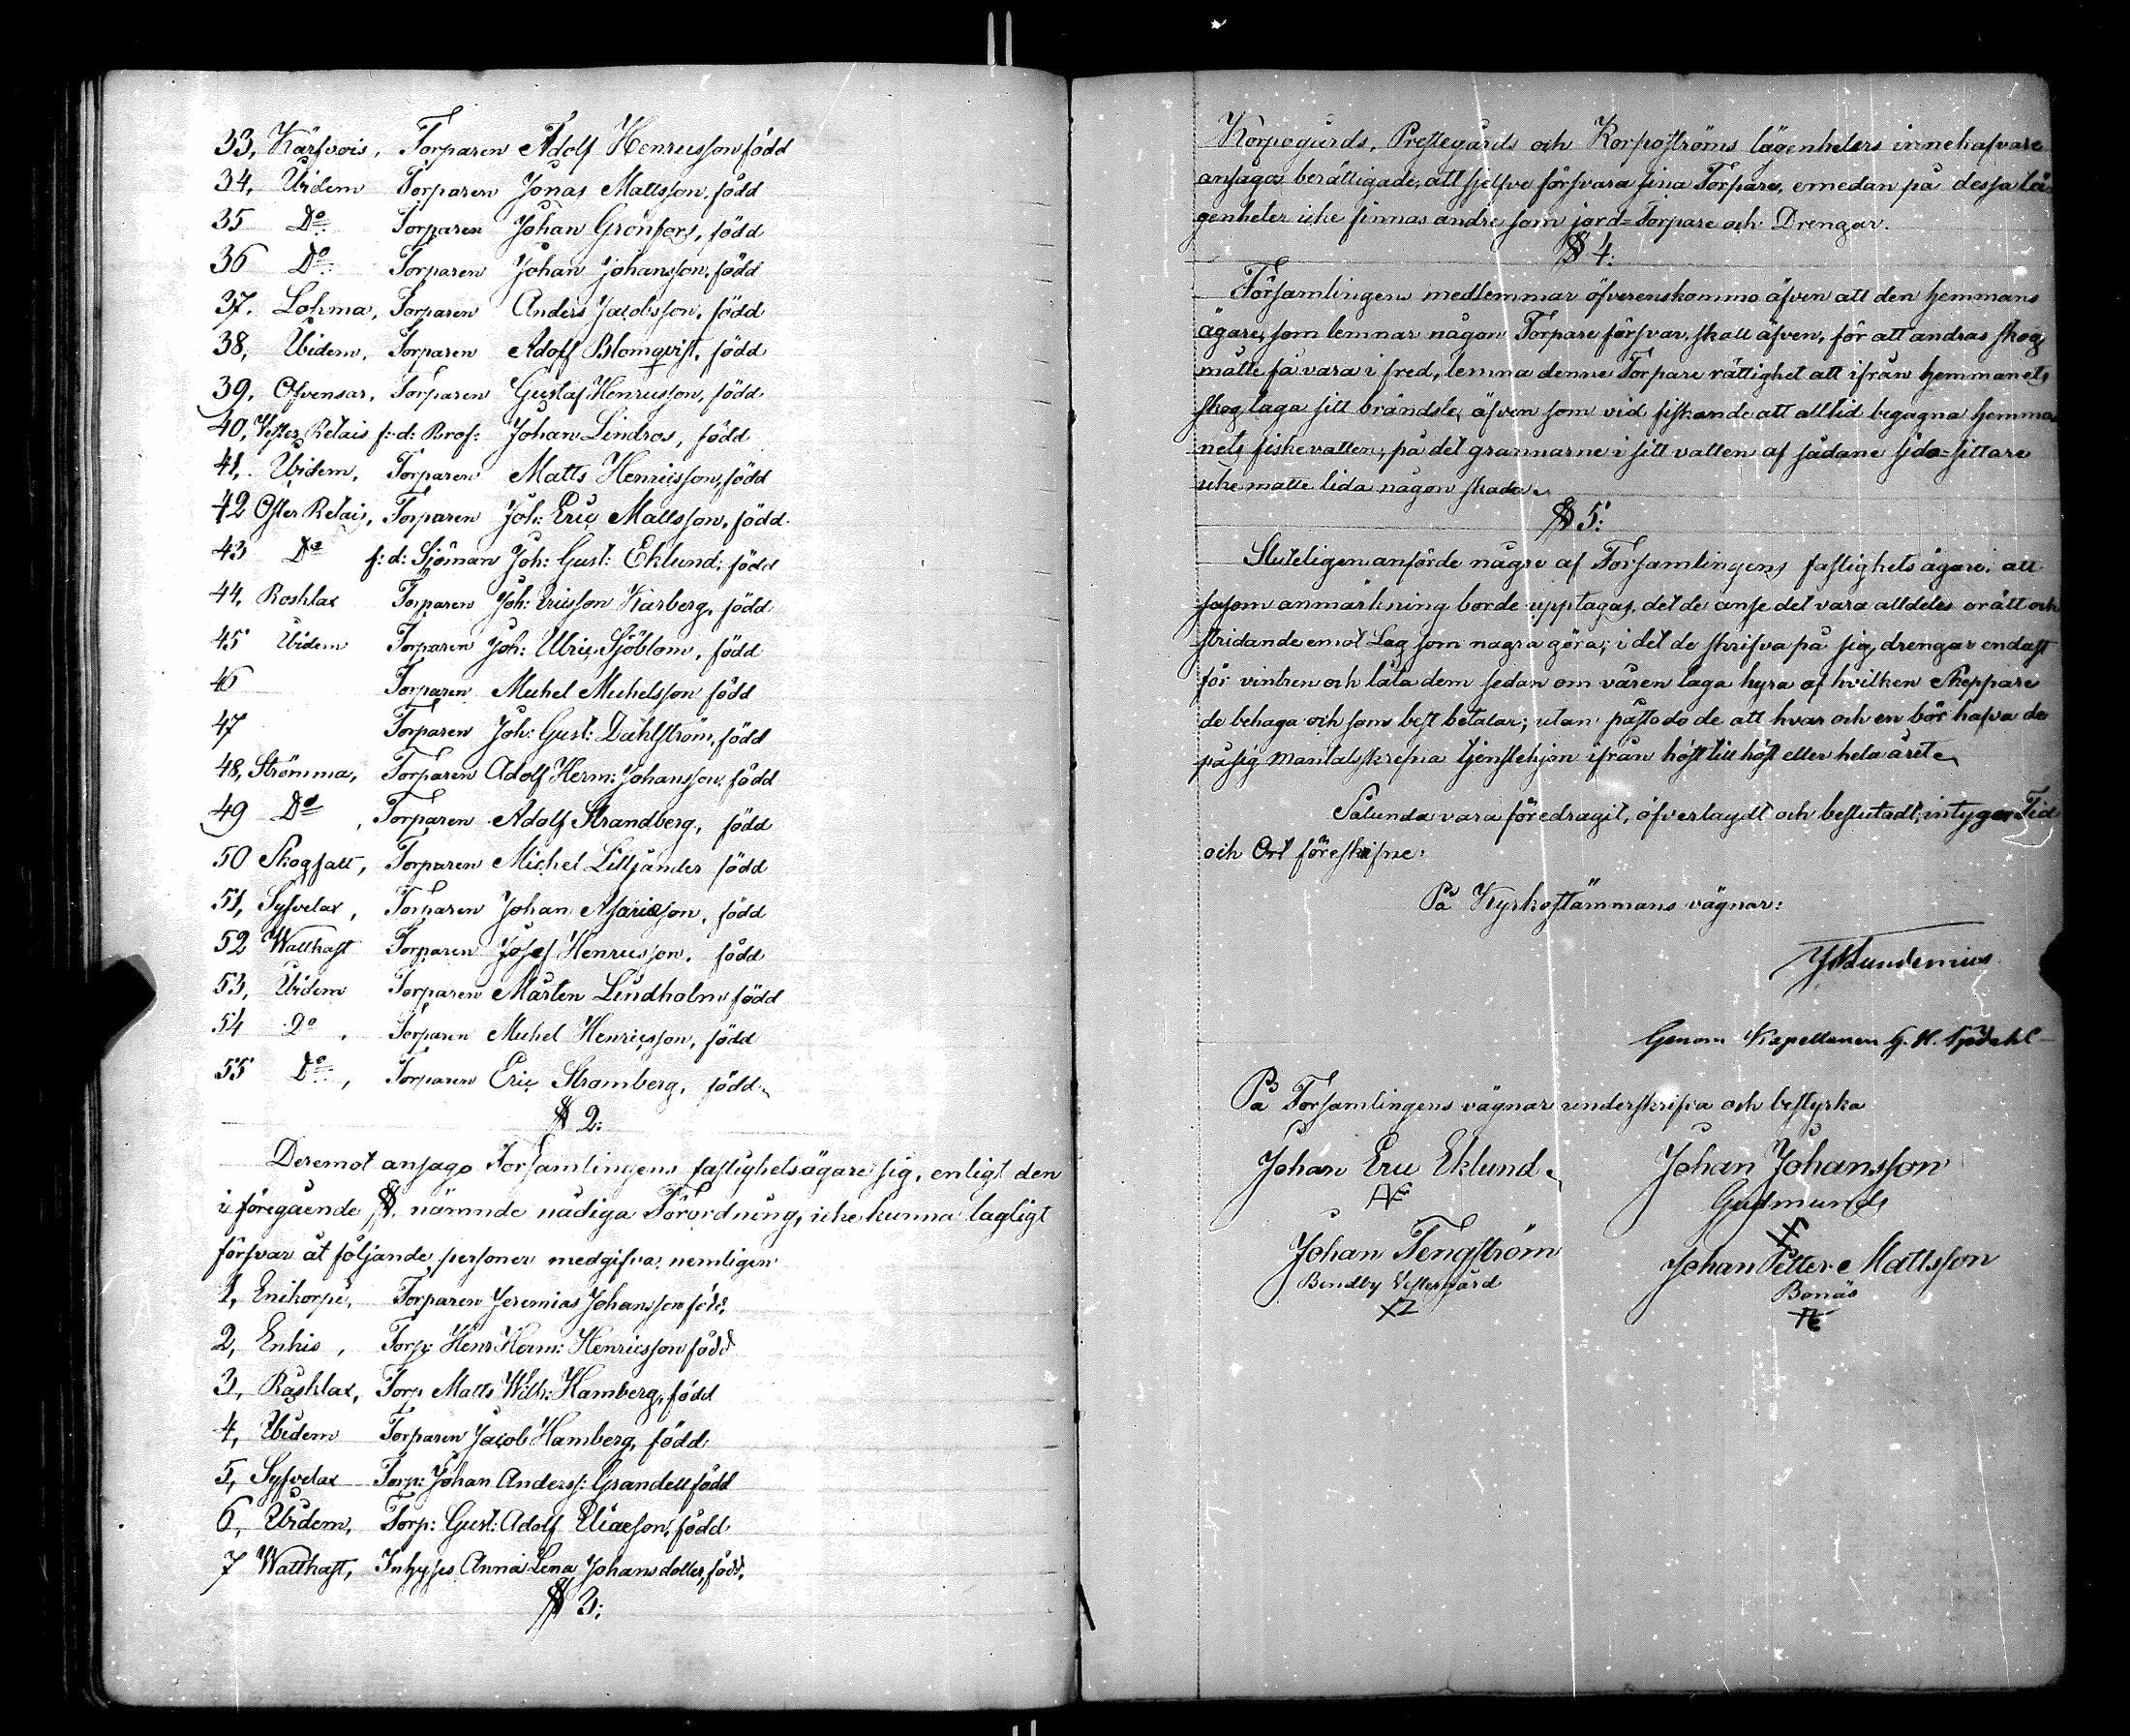 33, Kärfvois, Torparen Adolf Henricsson född
34, Ibidem Torparen Jonas Mattsson, född
35 Do Torparen Johan Grönfors, född
36 Do Torparen Johan Johansson, född
37. Lohma, Torparen Anders Jacobsson, född
38, Ibidem, Torparen Adolf Blomqvist, född
39, Ofvensar, Torparen Gustaf Henricsson, född
40, Vester Retais f: d: Brof: Johan Lindros, född
41, Ibidem, Torparen Matts Henricsson, född
42 Öster Retais, Torparen Joh: Eric Mattsson, född
43 Do f: d: Sjöman Joh: Gust: Eklund: född
44, Roshlax Torparen Joh: Ericsson Karberg, född
45 Ibidem Torparen Joh: Ulric Sjöblom, född
46 Torparen Michel Michelsson född
47 Torparen Joh: Gust: Dahlström, född
48, Strömma, Torparen Adolf Herm: Johansson, född
49 Do, Torparen Adolf Strandberg, född
50 Skogsatt, Torparen Michel Litljander född
51, Syfvelax, Torparen Johan Asariæson, född
52 Wattkast Torparen Josef Henricsson, född
53, Ibidem Torparen Mårten Lindholm född
54 Do, Torparen Michel Henricsson, född
55 Do, Torparen Eric Stromberg, född
§ 2:
Deremot ansågo Församlingens fastighetsägare sig, enligt den
i föregående §. nämnde nådiga Förordning, icke kunna lagligt
försvar åt följande personer medgifva, nemligen
1, Enikorpi, Torparen Jeremias Johansson född.
2, Enkis, Torp: Henr Herm: Henricsson född
3, Råsklax, Torp Matts Wilh: Hamberg, född
4, Ibidem Torparen Jacob Hamberg, född
5, Syfvelax Torp: Johan Anderss: Grandell född
6, Ibidem, Torp: Gust: Adolf Eliaeson, född
7 Wattkast, Inhyses Anna Lena Johansdotter, född,
§ 3:
Korpogårds, Prestegårds och Korpoströms lägenheters innehafvare
ansågos berättigade, att sjelfve försvara sina Torpare, emedan på dessa lä-
genheter icke finnas andre som jord=Torpare och Drengar.
§ 4:
Församlingens medlemmar öfverenskommo äfven att den hemmans
ägare, som lemnar någon Torpare försvar, skall äfven, för att andras skog
måtte få vara i fred, lemna denne Torpare rättighet att ifrån hemmanets
skog taga sitt brändsle, äfven som vid fiskande att alltid begagna hemma-
nets fiskevatten, på det grannarne i sitt vatten af sådane sido=sittare
icke måtte lida någon skada.
§ 5:
Sluteligen anförde någre af Församlingens fastighets ägare, att
såsom anmärkning borde upptagas, det de anse det vara alldeles orätt och
stridande emot Lag som några göra, i det de skrifva på sig drengar endast
för vintren och låta dem sedan om våren taga hyra af hvilken Skeppare
de behaga och som best betalar; utan påstodo de att hvar och en bör hafva de
på sig mantalsskrefna tjenstehjon ifrån höst till höst eller hela året.
Sålunda vara föredragit, öfverlagdt och beslutadt, intygar Tid
och Ort föreskifne:
På Kyrkostämmans vägnar:
Lundenius
Genom Kapellanen G. H.
På Församlingens vägnar underskrifva och bestyrka
Johan Eric Eklund Johan Johansson
Gudmunds
Johan Tengström Johan Petter Mattsson
Bendby Vestergård Bonäs